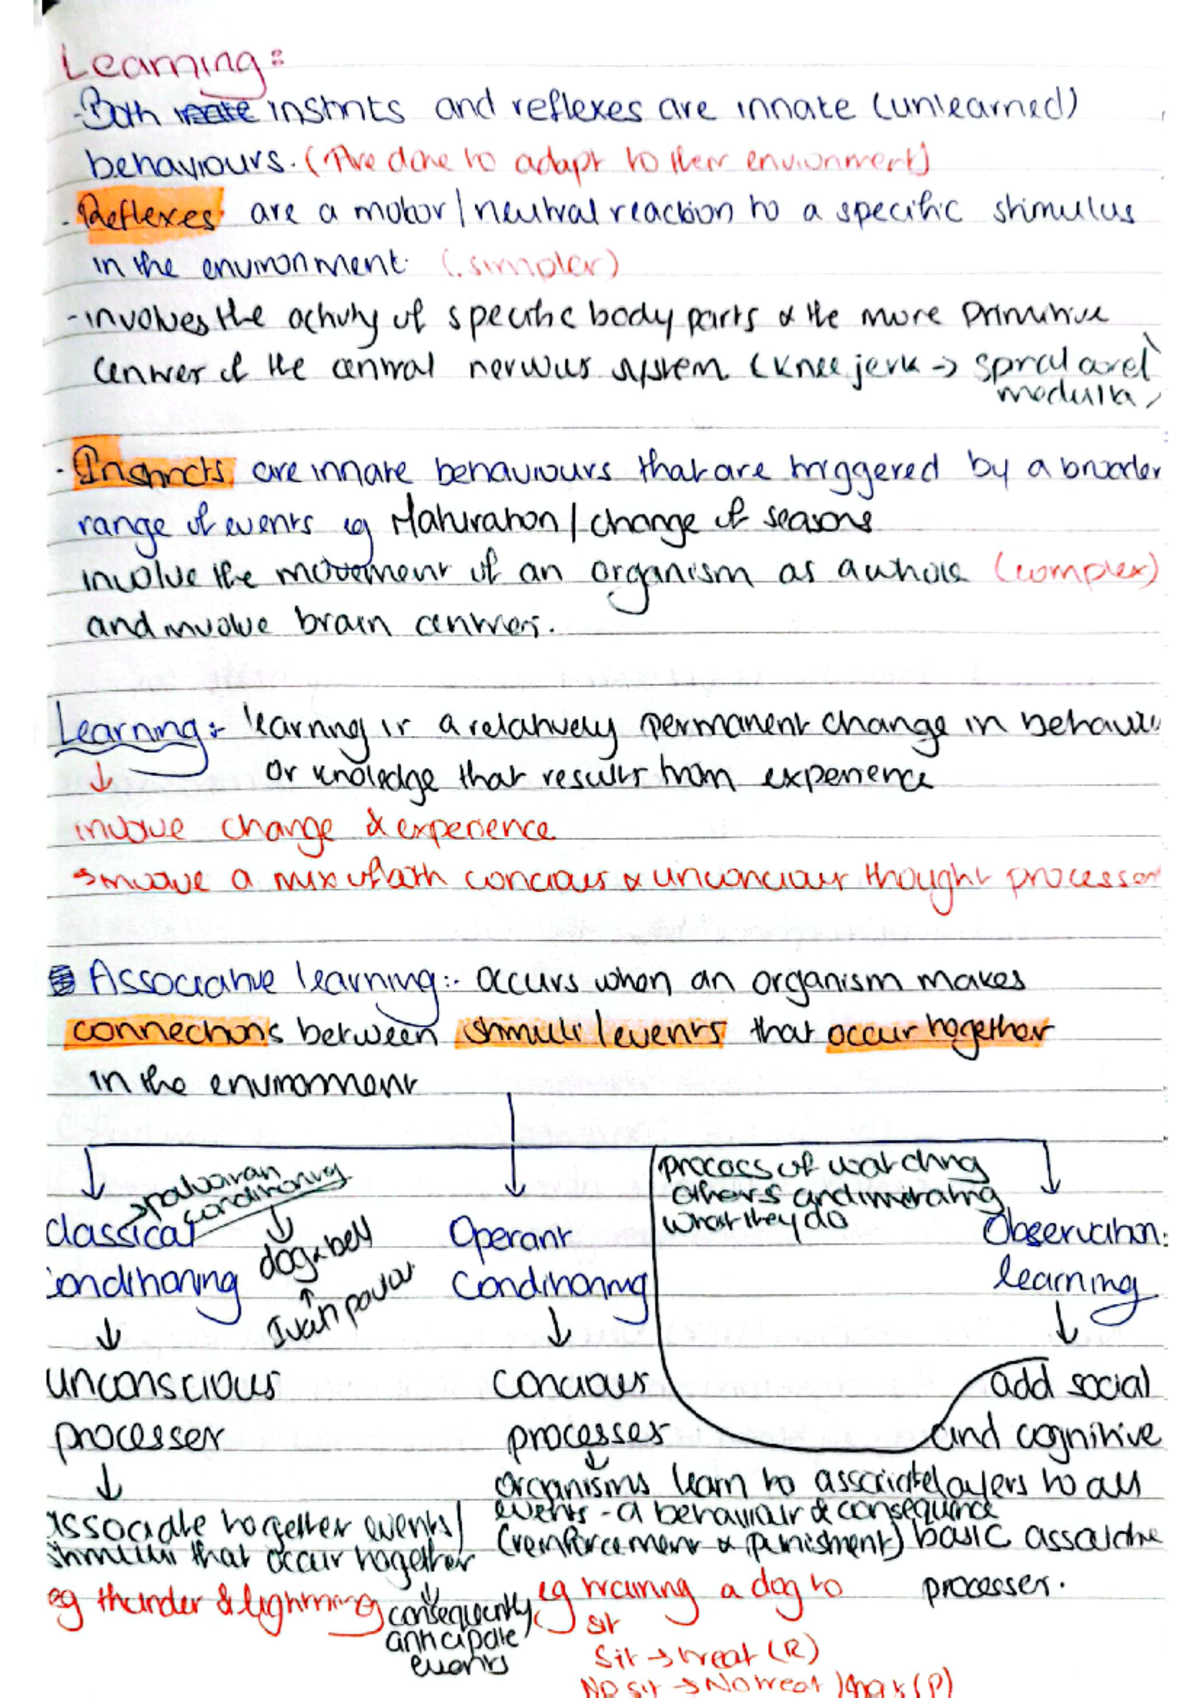 Learning:
- Both instincts and reflexes are innate (unlearned)
behaviours. (Are done to adapt to their environment)
- Reflexes: are a motor/neutral reaction to a specific stimulus
in the environment. (simpler)
- involves the activity of specific body parts & the more primitive
center of the central nervous system (knee jerk -> spinal
medulla)
- Instincts are innate behaviours that are triggered by a broader
range of events eg Maturation/change of seasons
involve the movement of an organism as a whole (complex)
and involve brain centres.
Learning:- learning is a relatively permanent change in behaviour
or knoledge that results from experience
↓
involve change & experience
→ involve a mix of both concious & unconcious thought processes
Associative learning:- occurs when an organism makes
connections between stimuli/events that occur together
in the environment
→ pavlovian conditioning
process of watching
others and imitating
what they do
Classical
conditioning
↓
dog & bell
↑
Ivan pavlov
Operant
Conditioning
Observation:
learning
↓ ↓ ↓
unconscious
processes
concious
processes
add social
and cognitive
layers to all
basic associative
processes.
↓
associate together events/
stimulus that occur together
↓
organisms learn to associate
events - a behaviour & consequence
(reinforcement & punishment)
eg thunder & lightning
consequently,
anticipate
events
eg training a dog to
sit
Sit → treat (R)
No sit → No treat
(P)